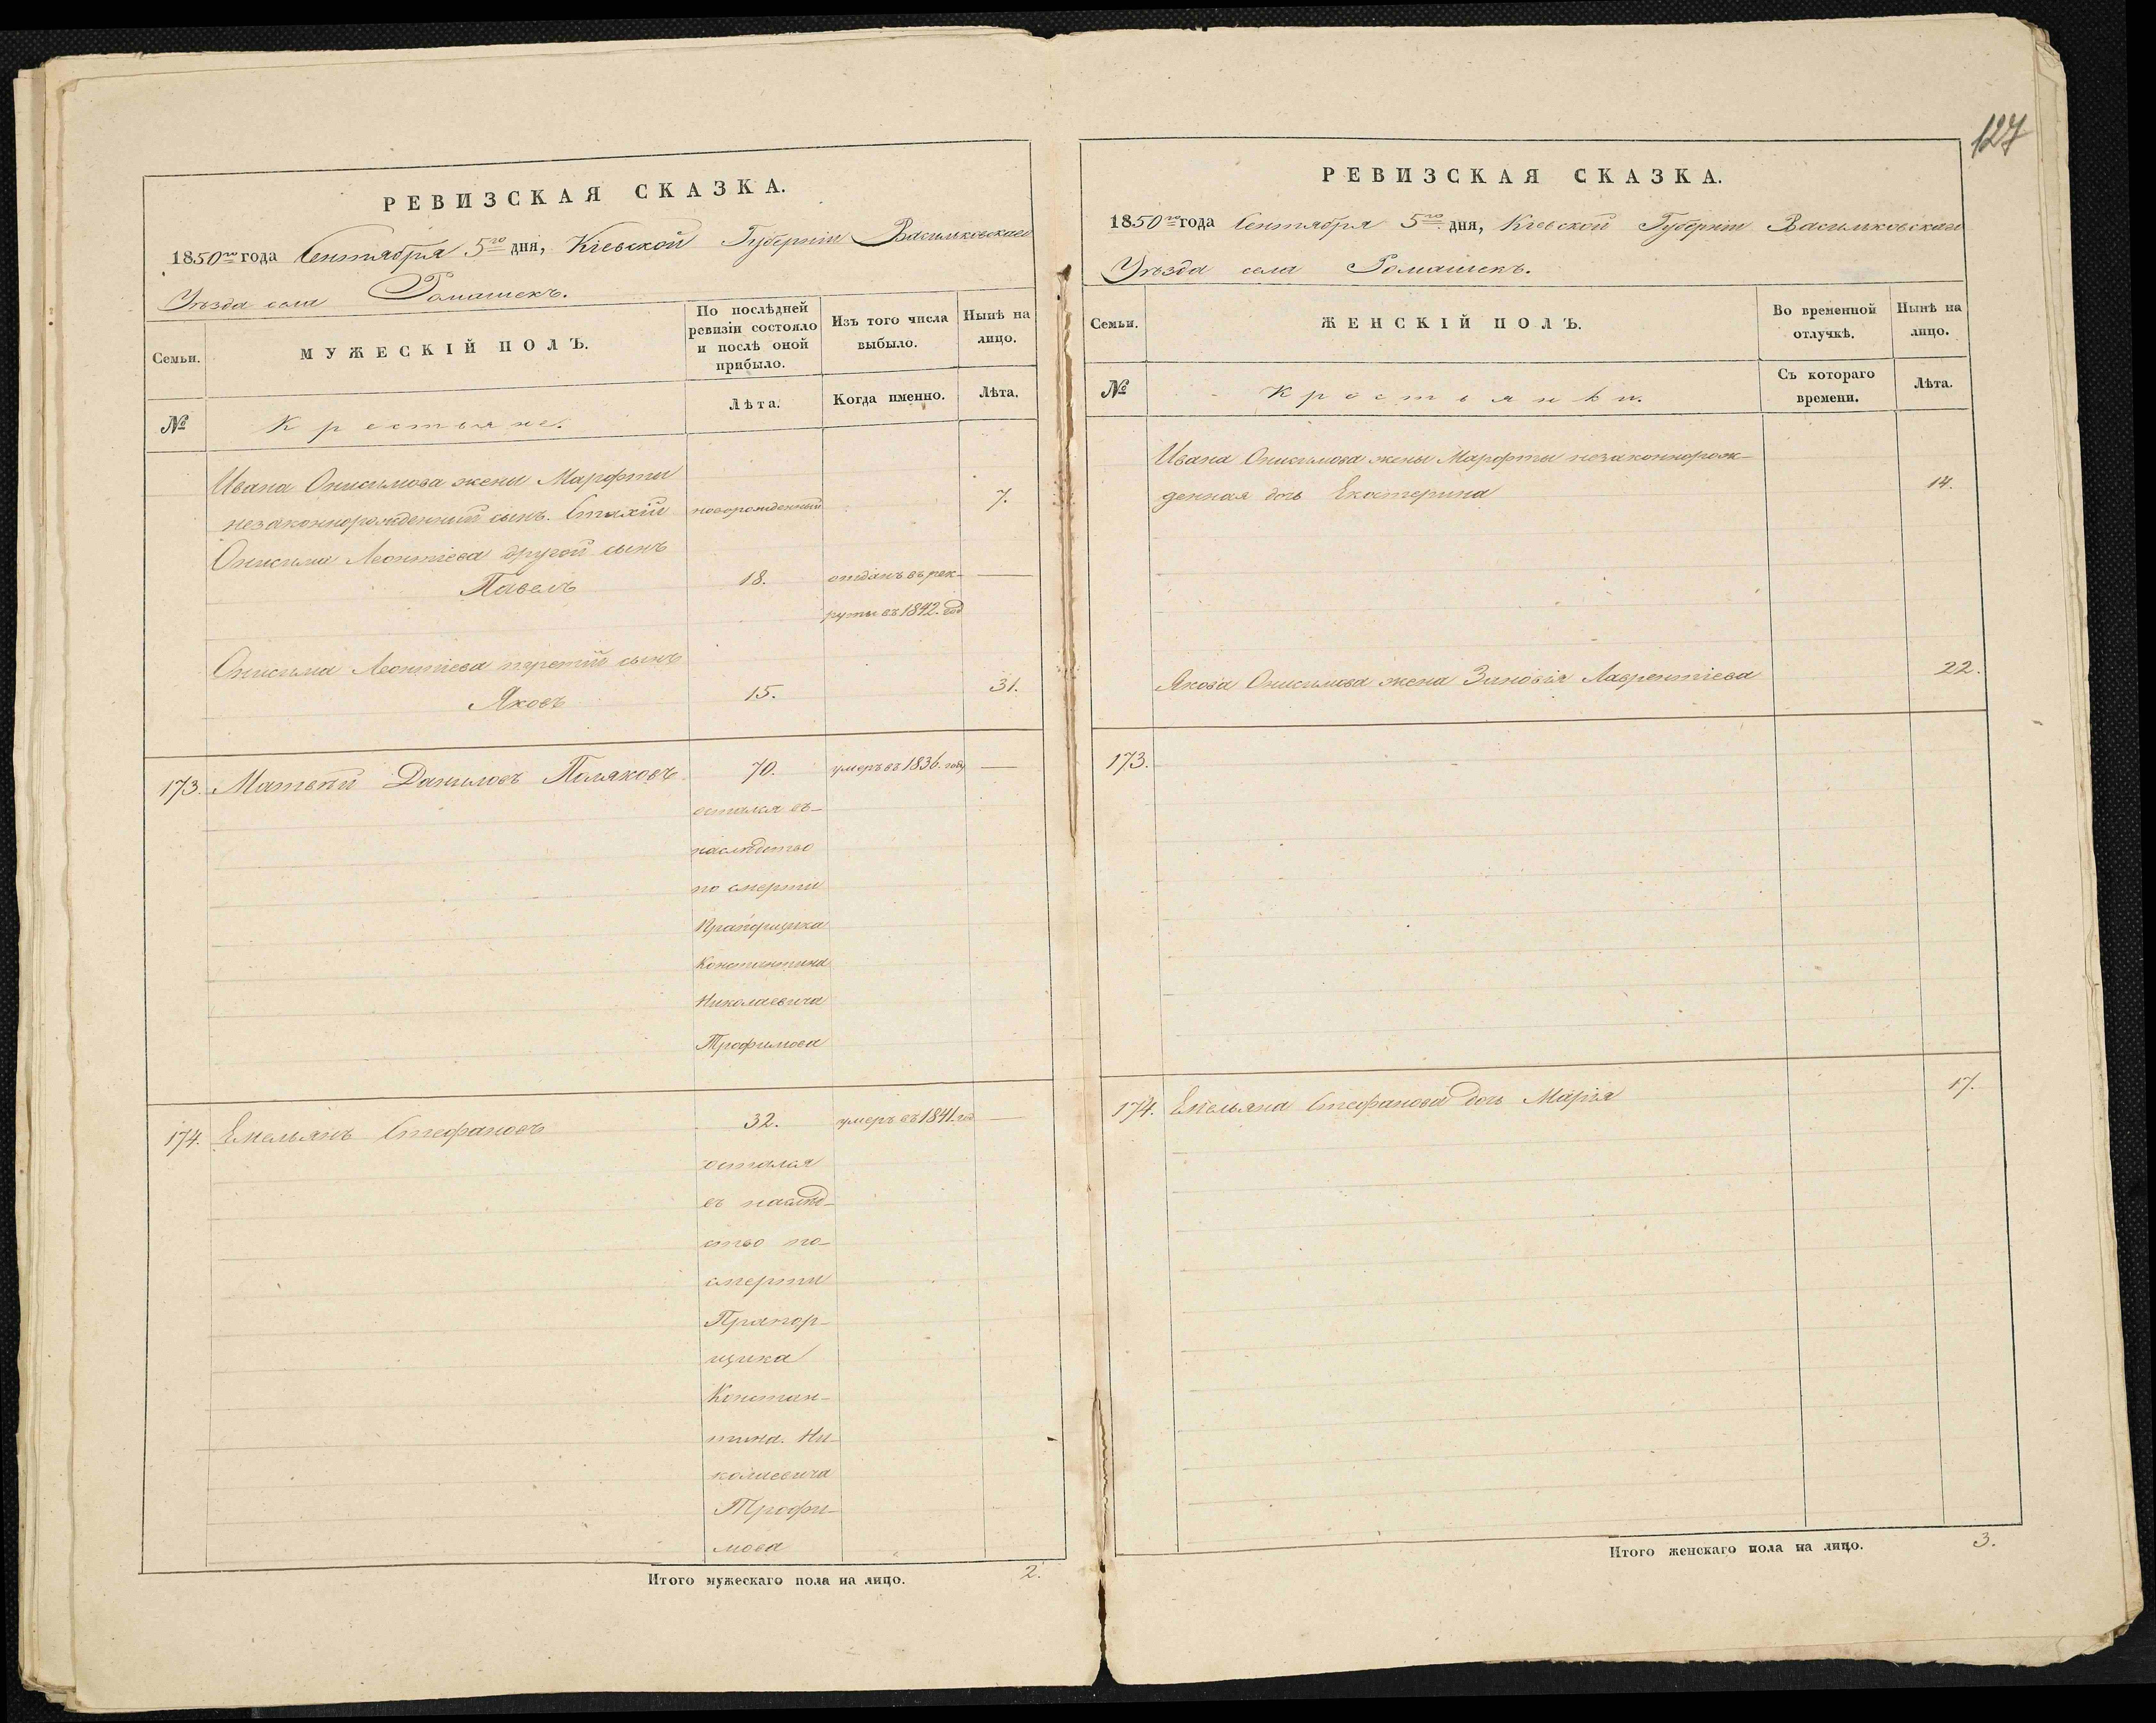 127
РЕВИЗСКАЯ СКАЗКА.
1850го года Сентября 5го дня, Кіевской Губерніи Васильковскаго
Уѣзда села Ромашекъ.
Семьи.
МУЖЕСКІЙ ПОЛЪ.
По послѣдней ревизіи состояло и послѣ оной прибыло.
Изъ того числа выбыло.
Нынѣ на лицо.
№
Крестьяне.
Лѣта.
Когда именно.
Лѣта.
Ивана Онисимова жены Марфты
незаконнорожденный сынъ. Стахій новорожденный 7.
Онисима Леонтіева другой сынъ
Павелъ 18. отданъ въ рек-
руты въ 1842. год
Онисима Леонтіева третій сынъ
Яковъ 15. 31.
173. Матвѣй Даниловъ Поляковъ 70. умеръ въ 1836. году
остался въ
наслѣдство
по смерти
Прапорщика
Константина
Николаевича
Трофимова
174. Емельянъ Стефановъ 32. умеръ въ 1841. год
остался
въ наслѣд-
ство по
смерти
Прапор-
щика
Констан-
тина. Ни-
колаевича
Трофи-
мова
Итого мужескаго пола на лицо. 2.
РЕВИЗСКАЯ СКАЗКА.
1850го года Сентября 5го дня, Кіевской Губерніи Васильковскаго
Уѣзда села Ромашекъ.
Семьи.
ЖЕНСКІЙ ПОЛЪ.
Во временной отлучкѣ.
Нынѣ на лицо.
№
Крестьянки.
Съ котораго времени.
Лѣта.
Ивана Онисимова жены Марфты незаконнорож-
денная дочь Екатерина 14.
Якова Онисимова жена Зиновія Лаврентіева 22.
173.
174. Емельяна Стефанова дочь Марія 17.
Итого женскаго пола на лицо. 3.